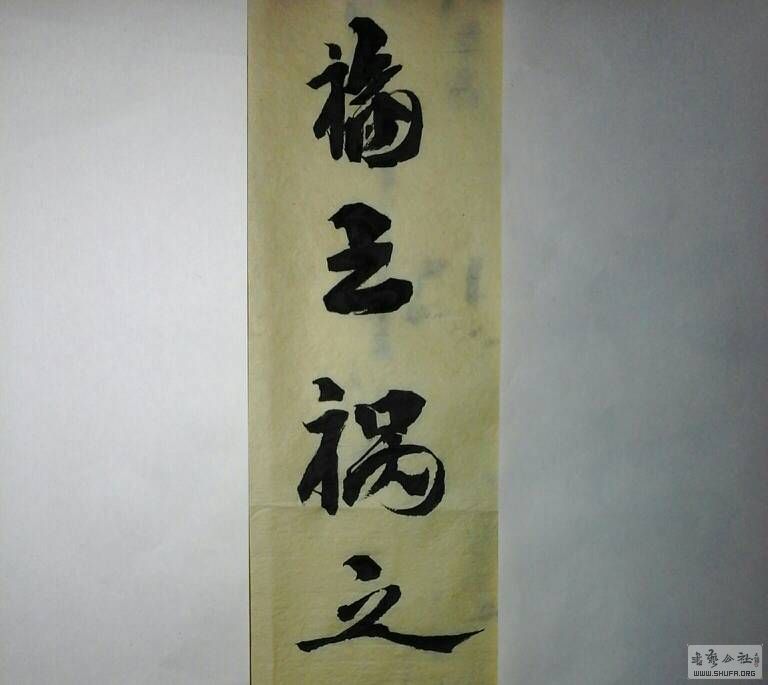 之
祸
之
书艺公社
WWW.SHUFA.ORG